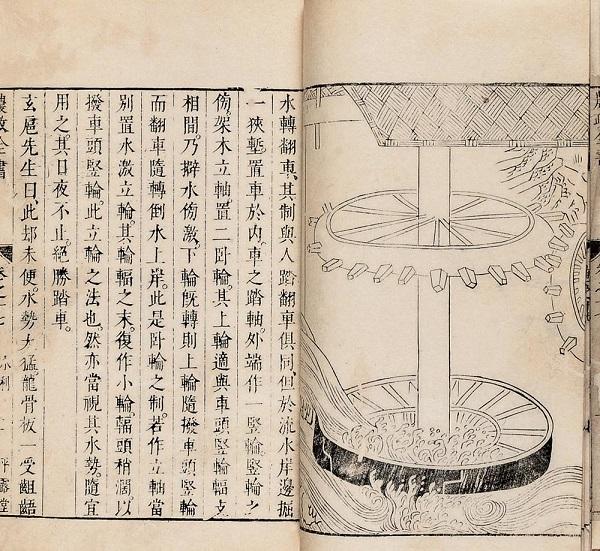 水轉翻車其制與人踏翻車俱同但於流水岸邊掘
一狹塹置車於內車之踏軸外端作一竪輪竪輪之
傍架木立軸置二卧輪其上輪適與車頭竪輪輻支
相間乃擗水傍激下輪既轉則上輪隨撥車頭竪輪
而翻車隨轉倒水上岸此是卧輪之制若作立軸當
別置水激立輪其輪輻之末復作小輪輻頭稍濶以
撥車頭竪輪此立輪之法也然亦當視其水勢隨宜
用之其日夜不止絕勝踏車
玄扈先生曰此却未便水勢太猛龍骨板一受齟齬
農政全書 卷之十七 水利 平露堂